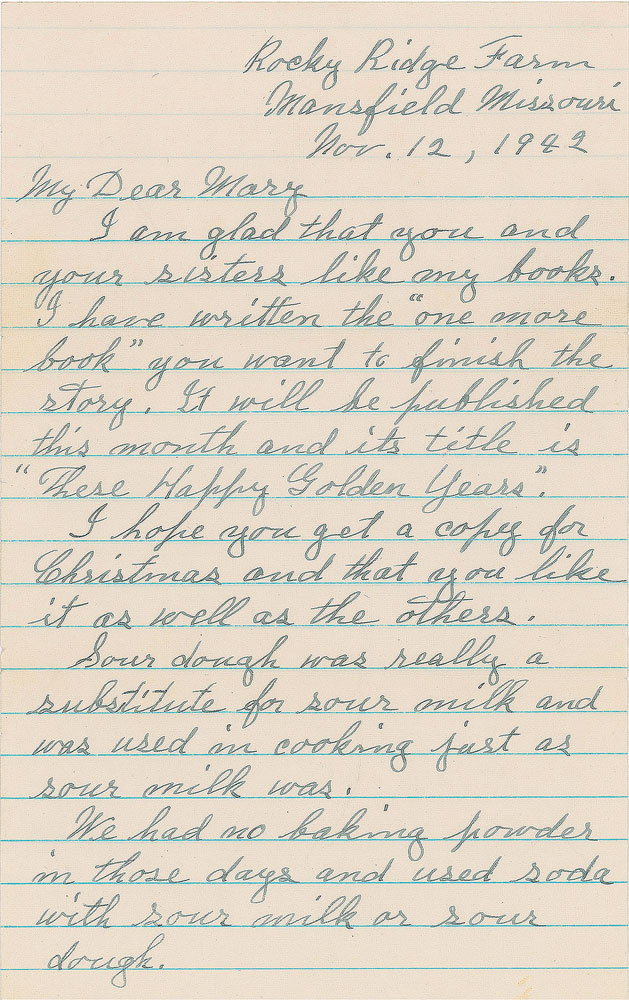 Rocky Ridge Farm
Mansfield Missouri
Nov. 12, 1942
My Dear Mary
I am glad that you and
your sisters like my books.
I have written the "one more
book" you want to finish the
story. It will be published
this month and its title is
"These Happy Golden Years".
I hope you get a copy for
Christmas and that you like
it as well as the others.
Sour dough was really a
substitute for sour milk and
was used in cooking just as
sour milk was.
We had no baking powder
in those days and used soda
with sour milk or sour
dough.